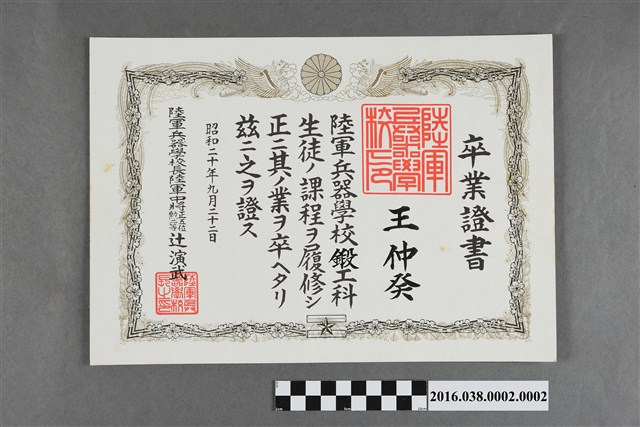 卒業證書
王仲癸
陸軍兵器學校鍛工科
生徒ノ課程ヲ履修シ
正ニ其ノ業ヲ卒ヘタリ
玆ニ之ヲ證ス
昭和二十年九月二十二日
陸軍兵器學校長陸軍中將正五位勲二等辻演武
陸軍兵器學校印
2016.038.0002.0002